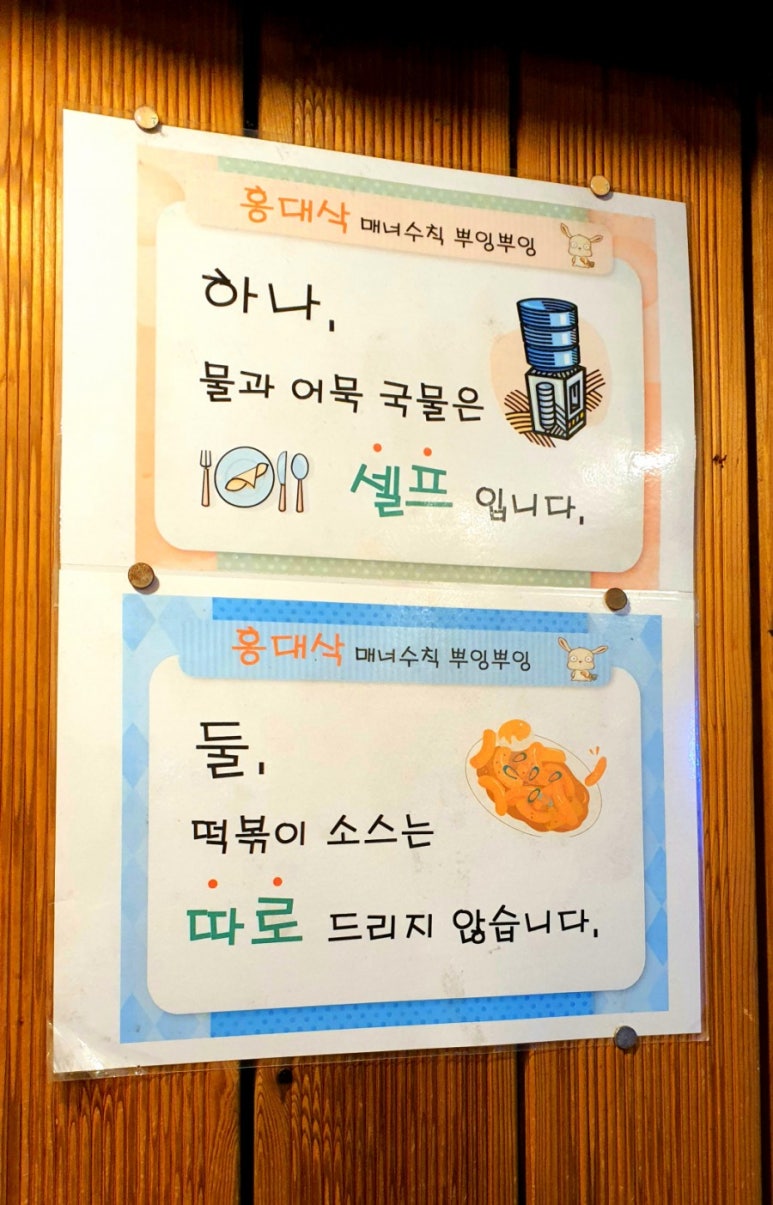 홍대삭 매너수칙 뿌잉뿌잉
하나,
물과 어묵 국물은
셀프 입니다.
홍대삭 매너수칙 뿌잉뿌잉
둘,
떡볶이 소스는
따로 드리지 않습니다.